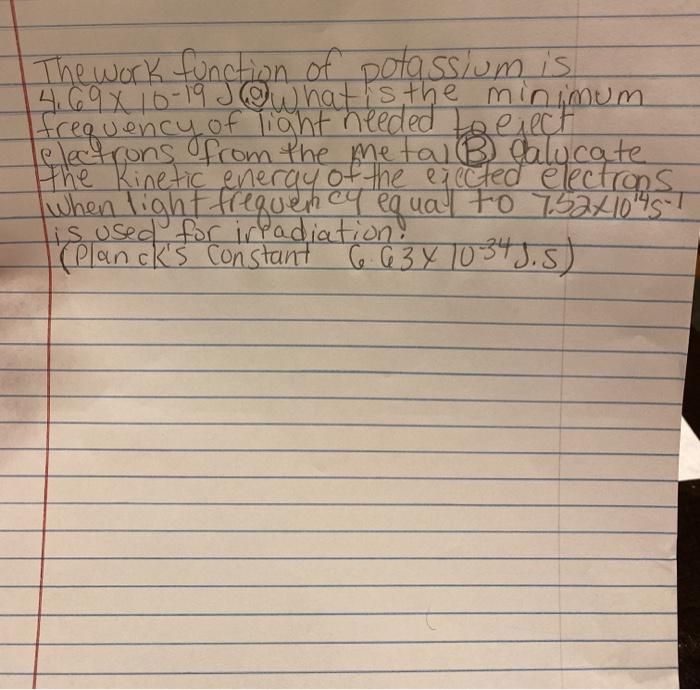 The work function of potassium is
4.69 x 10-19 J (a) what is the minimum
frequency of light needed to eject
electrons from the metal (B) Calucate
the kinetic energy of the ejected electrons
when light frequency equal to 7.52x10¹⁴s-1
is used for irradiation?
(Planck's Constant 6.63 x 10-34 J.s)